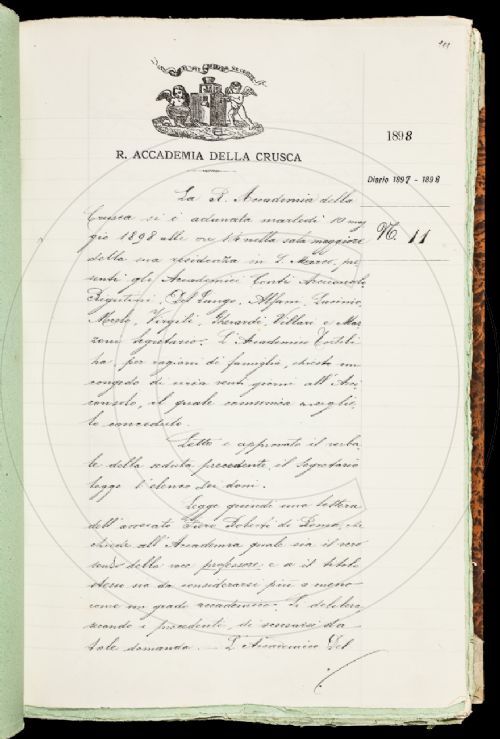 211
R. ACCADEMIA DELLA CRUSCA
1898
Diario 1897 - 1898
N. 11
La R. Accademia della
Crusca si è adunata martedì 10 mag
gio 1898 alle ore 14 nella sala maggiore
della sua residenza in S. Marco, pre
senti gli Accademici Conti Arciconsolo
Rigutini, Del Lungo, Alfani,
Virgili, Gherardi, Villari e Maz
zoni segretario. L'Accademico Tortoli
ha, per ragioni di famiglia, chiesto un
congedo di venti giorni all'Arci
consolo, il quale comunica
lo conceduto.
Letto e approvato il verba
le della seduta precedente, il segretario
legge l'elenco dei doni.
Legge quindi una lettera
dell'avvocato Piero Roberti di Roma, che
chiede all'Accademia quale sia il vero
senso della voce professore e se il titolo
stesso sia da considerarsi più o meno
come un grado accademico. Si delibera
secondo i precedenti, di scusarsi da
tale domanda. L'Accademico Del